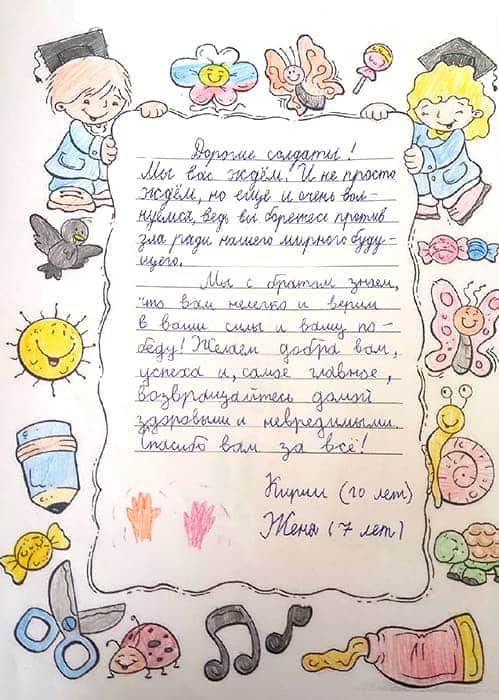 Дорогие солдаты!
Мы вас ждём! И не просто
ждём, но ещё и очень вол-
нуемся, ведь вы боретесь против
зла ради нашего мирного буду-
щего.
Мы с братом знаем,
что вам нелегко и верим
в ваши силы и вашу по-
беду! Желаем добра вам,
успеха и, самое главное,
возвращайтесь домой
здоровыми и невредимыми.
Спасибо вам за всё!
Кирилл (10 лет)
Женя (7 лет)